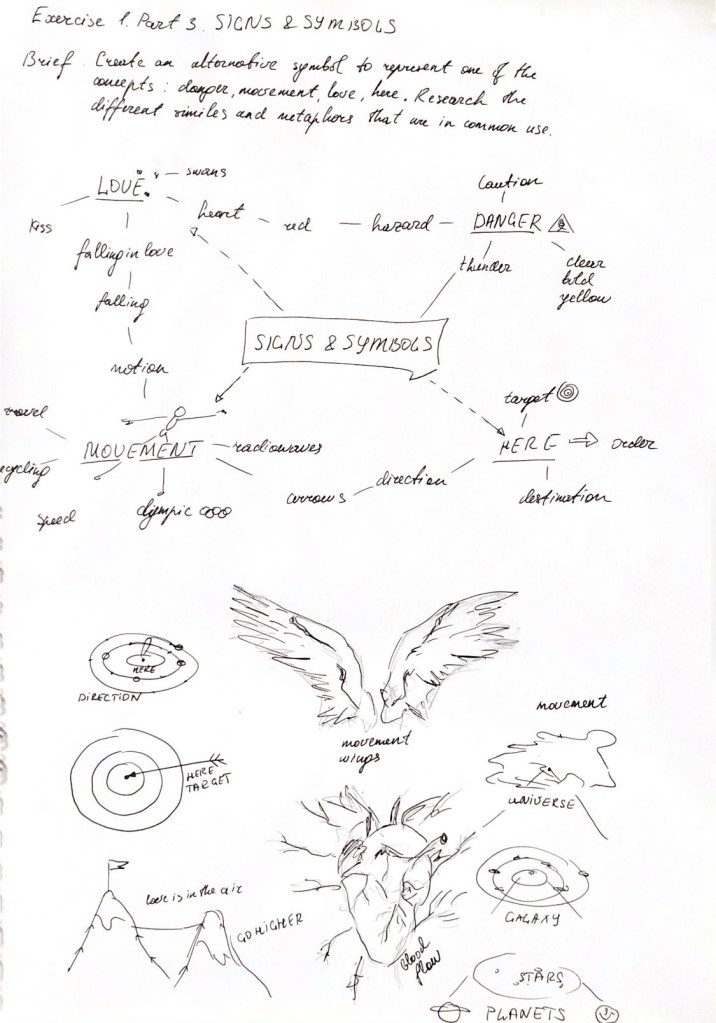 Exercise 1. Part 3. SIGNS & SYMBOLS
Brief. Create an alternative symbol to represent one of the
concepts: danger, movement, love, here. Research the
different similes and metaphors that are in common use.
LOVE
swans
Kiss
heart
red
hazard
Caution
DANGER
thunder
clear
bold
yellow
falling in love
falling
motion
SIGNS & SYMBOLS
travel
MOVEMENT
radiowaves
ecycling
Speed
olympic
arrows
direction
target
HERE
order
destination
HERE
DIRECTION
HERE
TARGET
movement
wings
movement
UNIVERSE
love is in the air
GO HIGHER
blood
flow
GALAXY
STARS
PLANETS